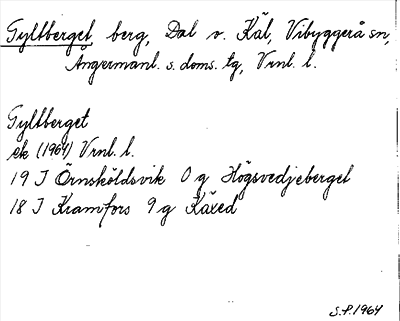 Gyltberget, berg, Dal v. Käl, Vibyggerå sn,
Ångermanl. s. doms. tg, Vrnl. l.
Gyltberget
ek (1964) Vrnl. l.
19 J Örnsköldsvik 0 g Högsvedjeberget
18 J Kramfors 9 g Käxed
S.P. 1964